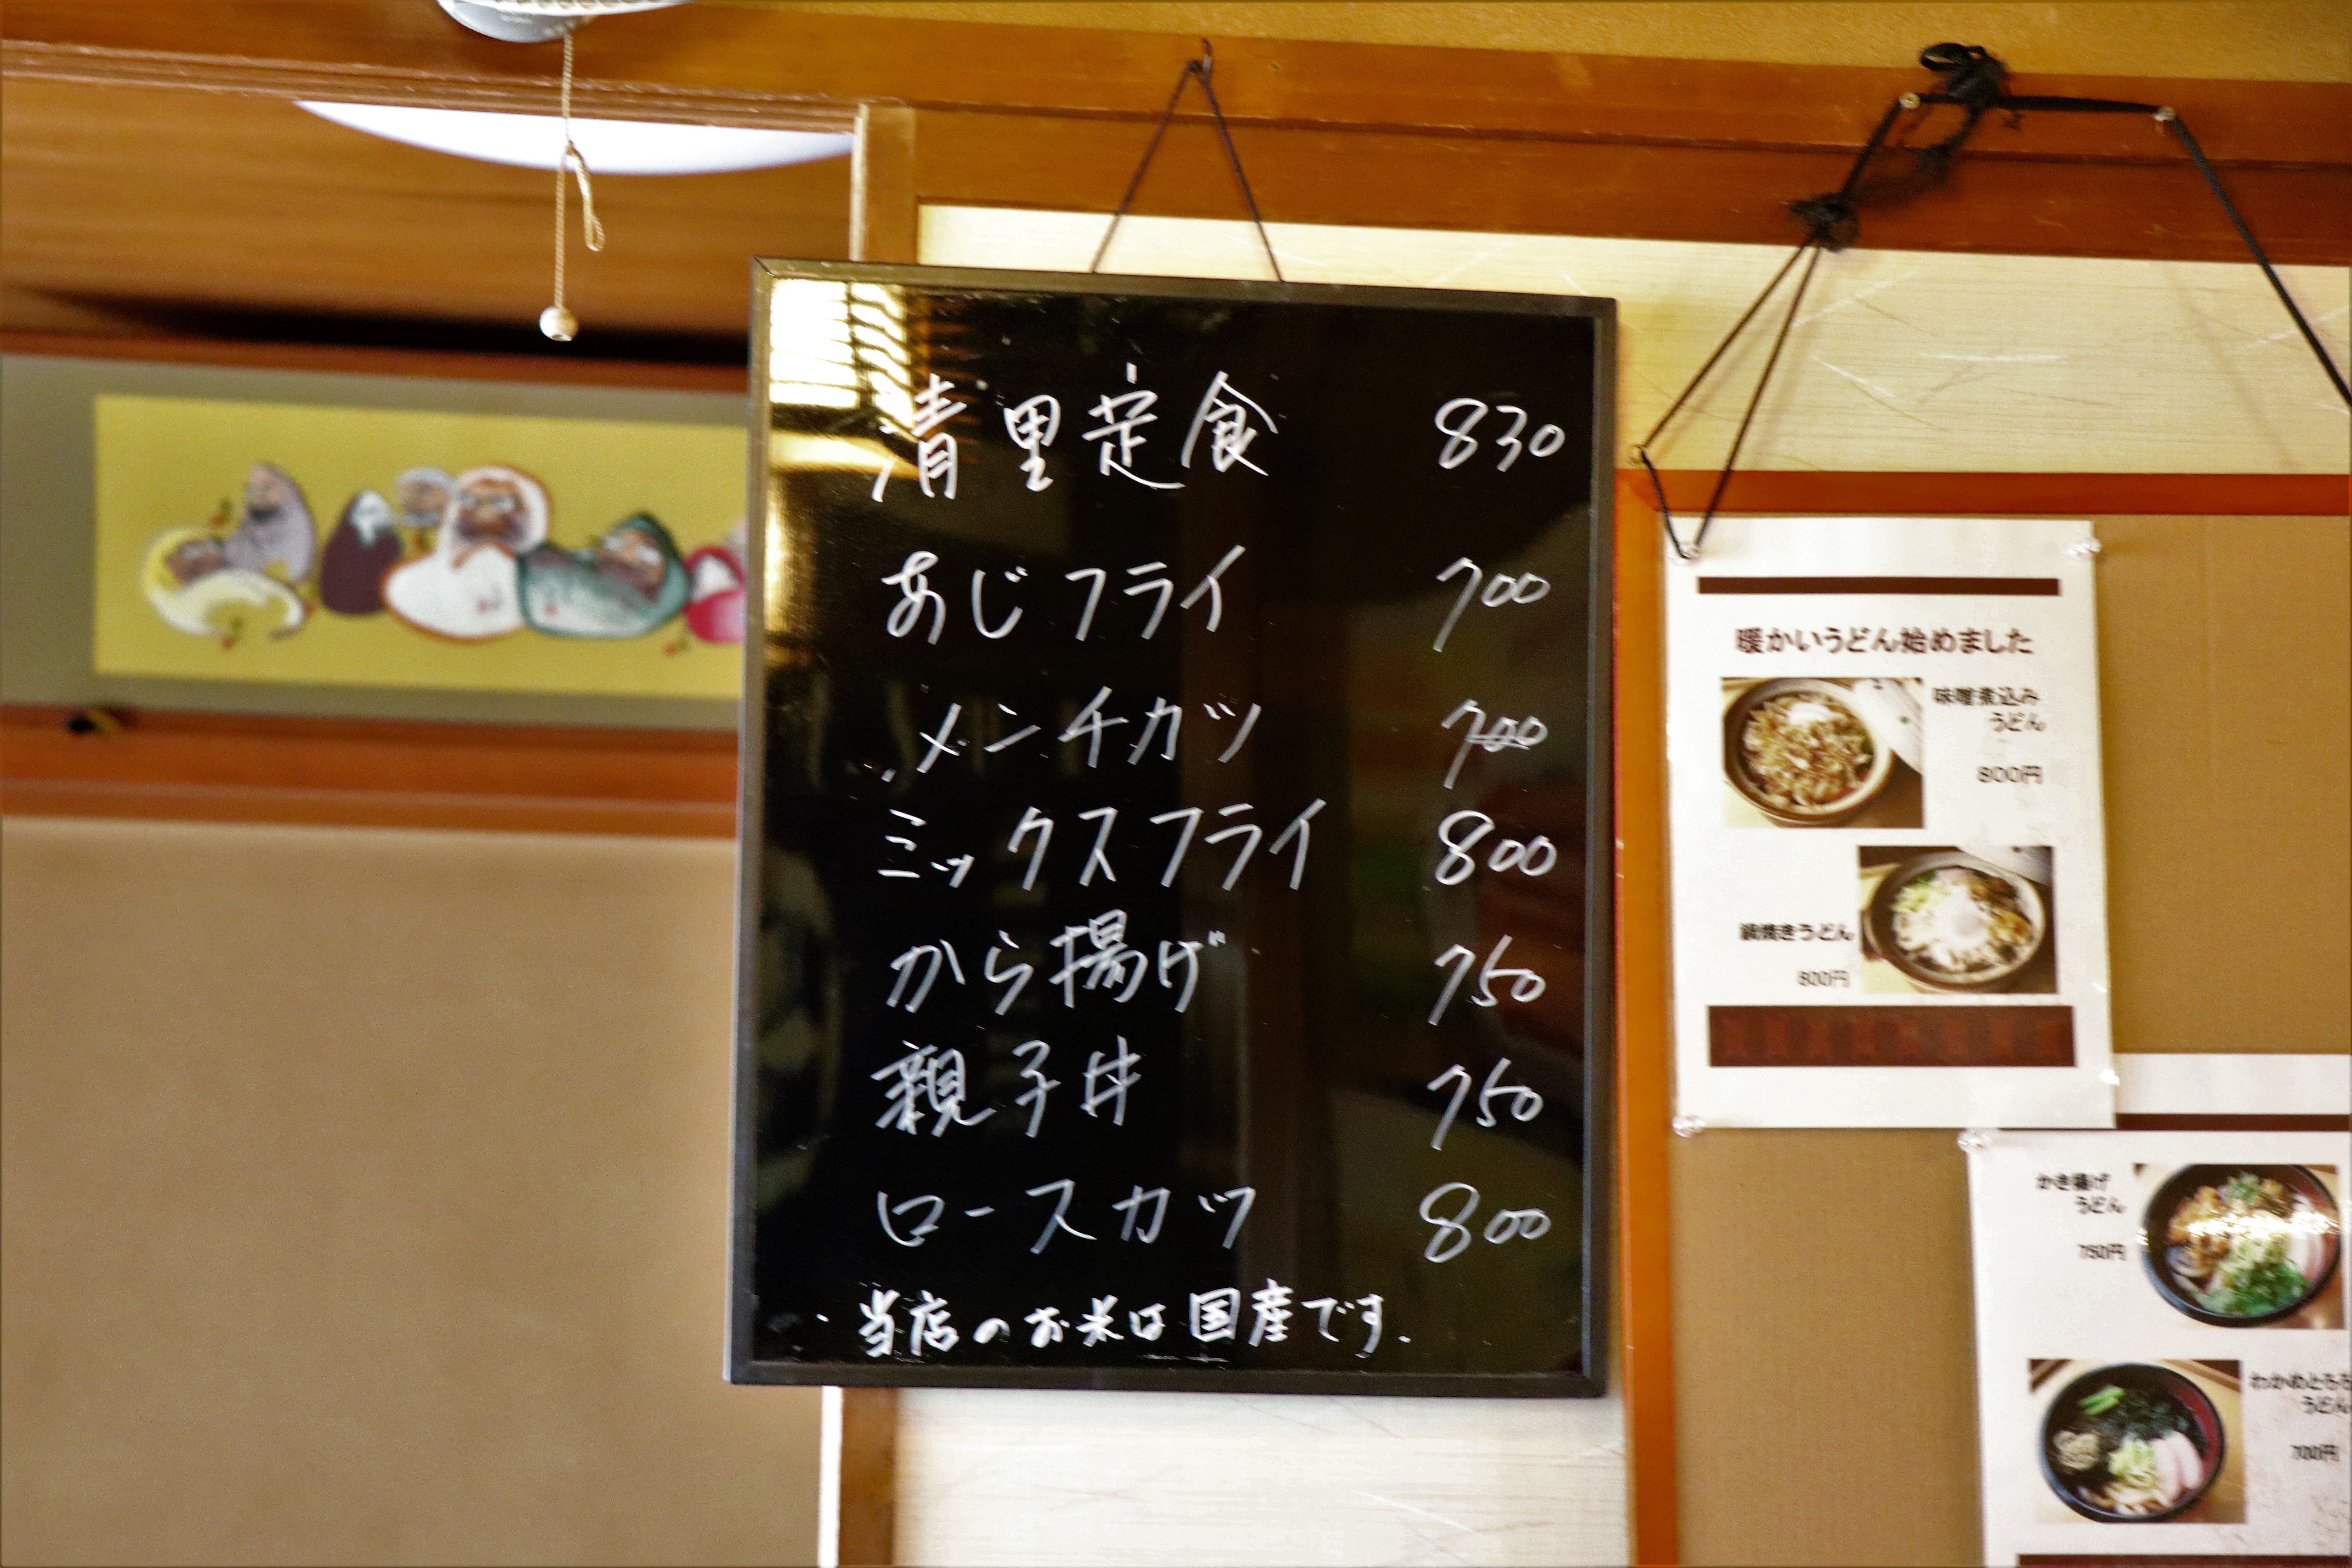 清里定食 830
あじフライ 700
メンチカツ 700
ミックスフライ 800
から揚げ 750
親子丼 750
ロースカツ 800
当店のお米は国産です.
暖かいうどん始めました
味噌煮込み
うどん
800円
鍋焼きうどん
800円
かき揚げ
うどん
750円
わかめとろろ
うどん
700円